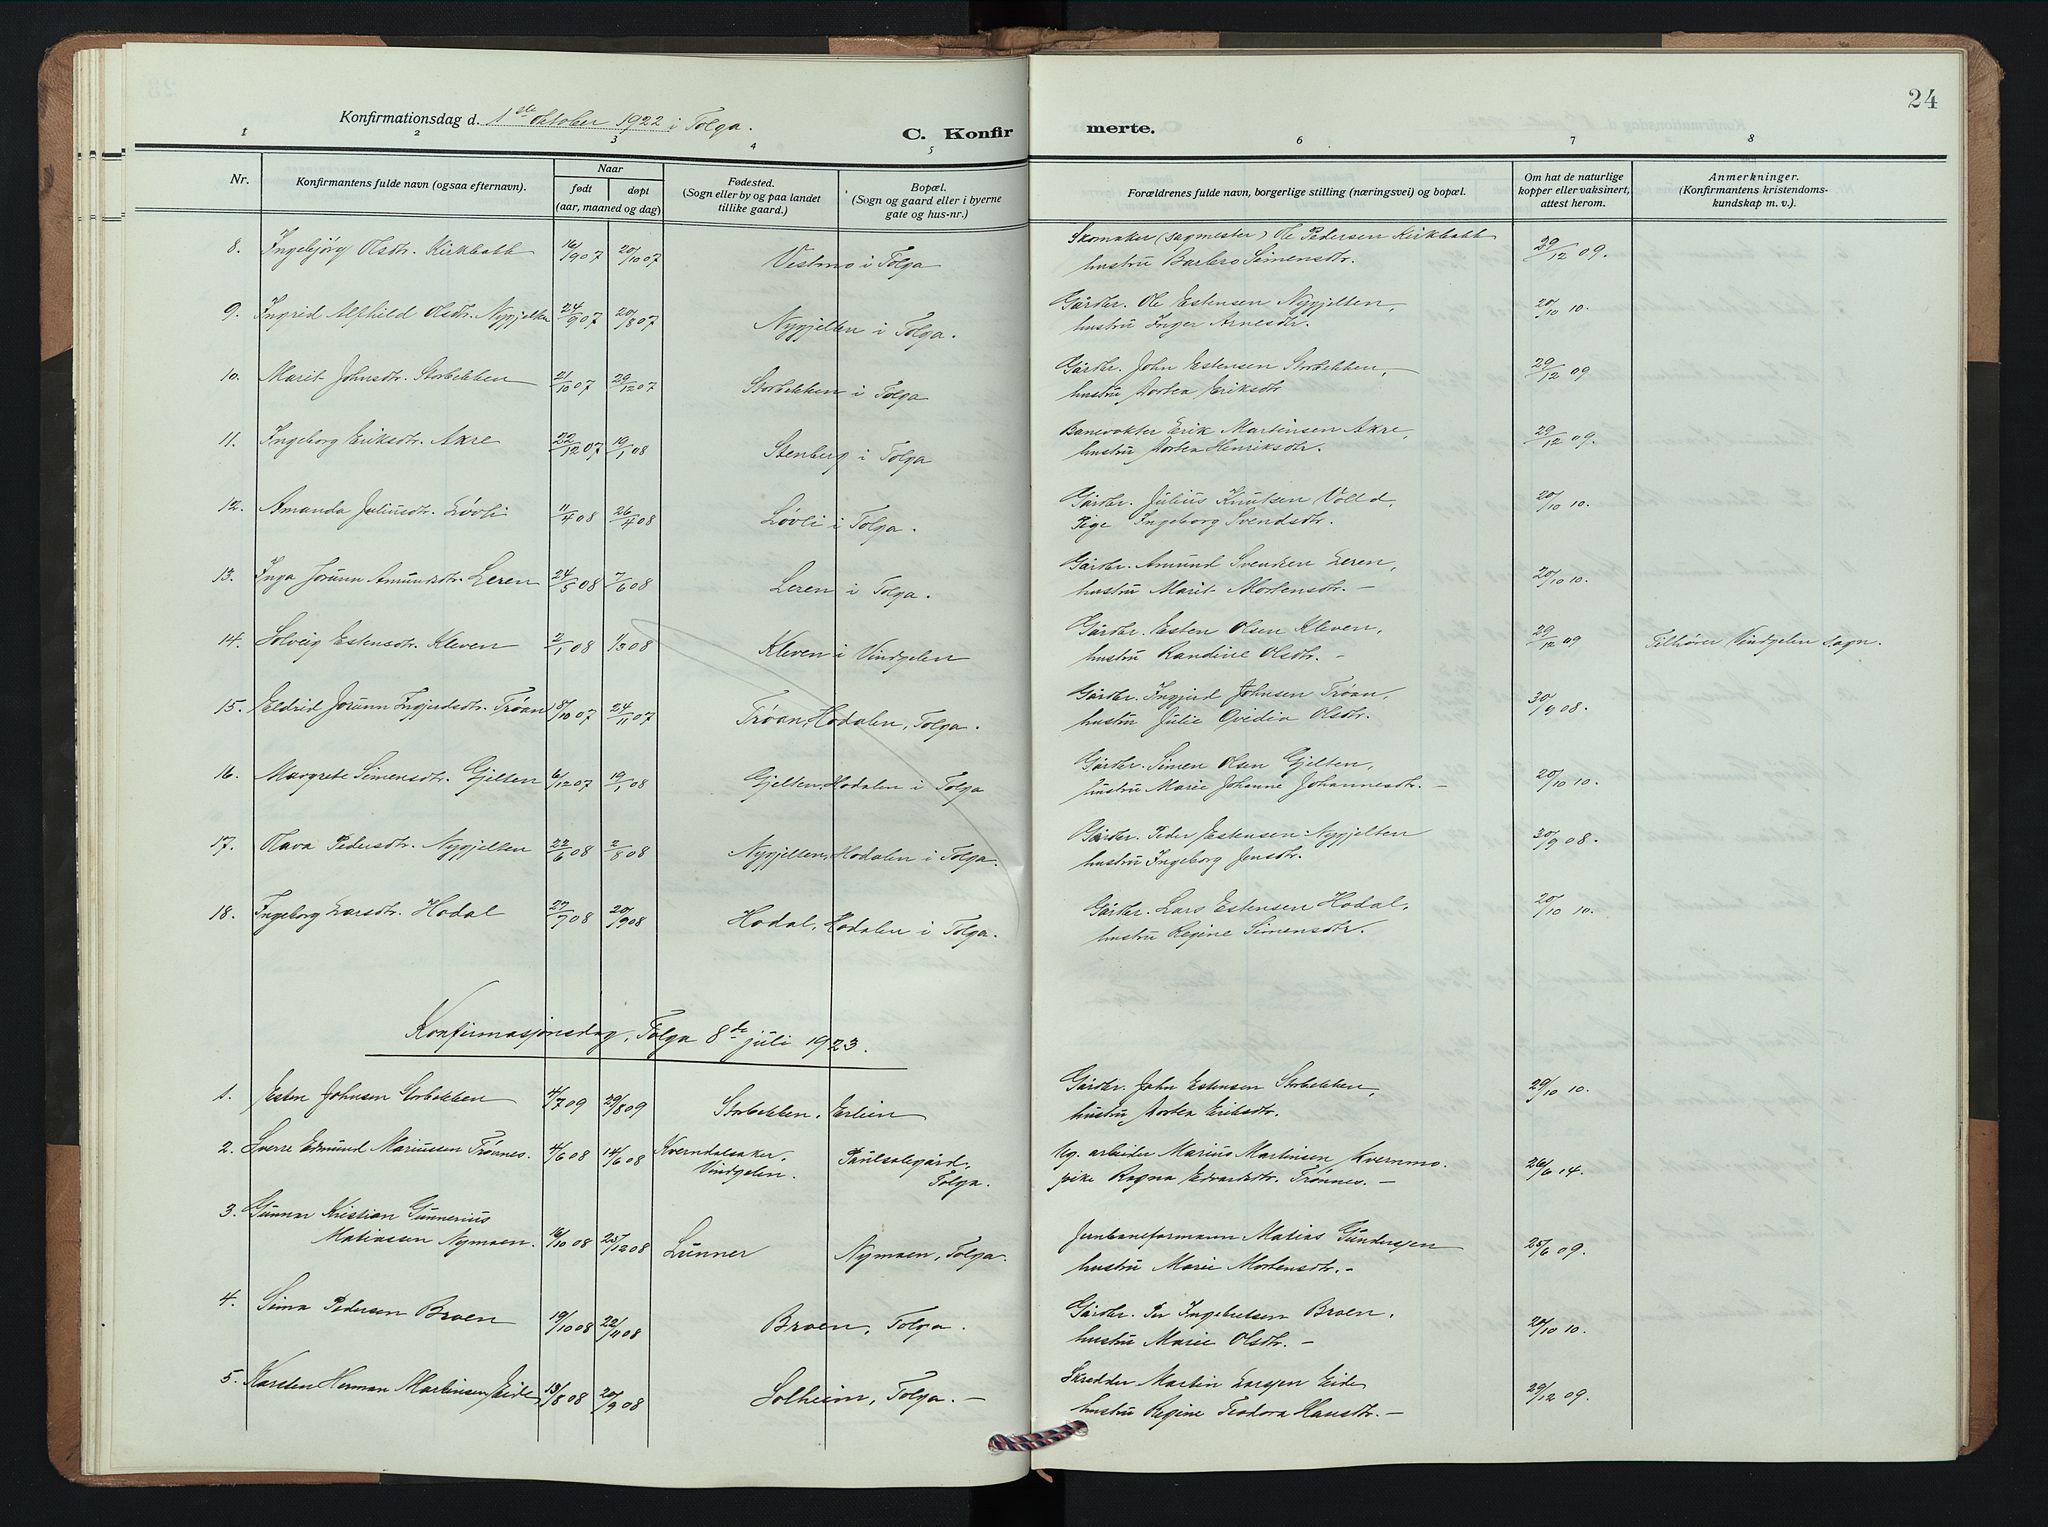 24
Konfirmationsdag d. 1ste oktober 1922 i Tolga.
C. Konfir
merte.
1 2 3 4 5 6 7 8
Nr.
Konfirmantens fulde navn (ogsaa efternavn).
Naar
født døpt
(aar, maaned og dag)
Fødested.
(Sogn eller by og paa landet
tillike gaard.)
Bopæl.
(Sogn og gaard eller i byerne
gate og hus-nr.)
Forældrenes fulde navn, borgerlige stilling (næringsvei) og bopæl.
Om hat de naturlige
kopper eller vaksinert,
attest herom.
Anmerkninger.
(Konfirmantens kristendoms-
kundskap m. v.).
8. Ingebjörg Olsdtr. Kirkbakk 16/9 07 20/10 07 Vestmo i Tolga
Skomaker (sagmester) Ole Pedersen Kirkbakk
hustru Barbro Simensdtr. 29/12 09.
9. Ingrid Alfhild Olsdtr. Nygjelten 24/9 07 20/8 07 Nygjelten i Tolga.
Gårdbr. Ole Estensen Nygjelten,
hustru Inger Arnesdtr. 20/10 10.
10. Marit Johnsdtr. Storbekken 21/10 07 29/12 07 Storbekken i Tolga
Gårdbr. John Estensen Storbekken,
hustru Dortea Eriksdtr 29/12 09
11. Ingeborg Eriksdtr. Akre 22/12 07 19/1 08 Stenberg i Tolga
Banevokter Erik Martinsen Akre,
hustru Dortea Henriksdtr. 29/12 09.
12. Amanda Juliusdtr. Løvli 11/4 08 26/4 08 Løvli i Tolga.
Gårdbr. Julius Knutsen Volld,
Pige Ingeborg Svendsdtr. 20/10 10.
13. Inga Jorunn Amundsdtr. Leren 24/5 08 7/6 08 Leren i Tolga.
Gårdbr. Amund Svendsen Leren,
hustru Marit Mortensdtr. — 20/10 10.
14. Solveig Estensdtr. Kleven 2/1 08 1/3 08 Kleven i Vindgelen
Gårdbr. Esten Olsen Kleven,
hustru Randine Olsdtr. — 29/12 09 Tilhører Vindgelen sogn.
15. Eldrid Jorunn Ingjerdsdtr. Trøan 8/10 07 24/11 07 Trøan, Hodalen, Tolga.
Gårdbr. Ingjerd Johnsen Trøan,
hustru Julie Ovidia Olsdtr. 30/9 08.
16. Margrete Simensdtr. Gjelten 6/12 07 19/1 08 Gjelten, Hodalen i Tolga
Gårdbr. Simen Olsen Gjelten,
hustru Marie Johanne Johannesdtr. — 20/10 10.
17. Olava Pedersdtr. Nygjelten 22/6 08 2/8 08 Nygjelten, Hodalen i Tolga.
Gårdbr. Peder Estensen Nygjelten
hustru Ingeborg Jensdtr. 30/9 08.
18. Ingeborg Larsdtr. Hodal 27/7 08 20/9 08 Hodal, Hodalen i Tolga.
Gårdbr. Lars Estensen Hodal,
hustru Regine Simensdtr. 20/10 10.
Konfirmasjonsdag, Tolga 8de juli 1923.
1. Esten Johnsen Storbekken 4/7 09 29/8 09 Storbekken, Erlien
Gårdbr. John Estensen Storbekken,
hustru Dortea Eriksdtr. 20/10 10.
2. Sverre Edmund Mariussen Trønnes. 4/6 08 14/6 08 Kverndalsaker, Vindgelen. Paulsalegård, Tolga.
Ug. arbeider Marius Martinsen, Kvernmo
pike Ragna Edvardsdtr. Trønnes. — 26/6 14.
3. Gunnar Kristian Gunnerius
Matiassen Nymoen. 16/10 08 25/12 08 Lunner Nymoen, Tolga.
Jernbaneformann Matias Gundersen
hustru Marie Mortensdtr. — 25/6 09.
4. Simn Pedersen Broen 19/10 08 22/11 08 Broen, Tolga.
Gårdbr. Per Ingebretsen Broen,
hustru Marie Olsdtr. — 20/10 10.
5. Karsten Herman Martinsen Eide 13/8 08 20/9 08 Solheim, Tolga. —
Skredder Martin Larsen Eide
hustru Regine Teodora Hansdtr. — 29/12 09.